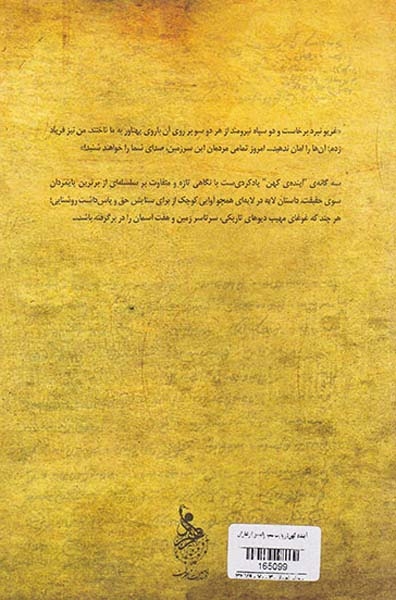 «غریو نبرد برخاست و دو سپاه نیرومند از هر دو سو بر روی آن باروی پهناور به ما تاختند. من نیز فریاد
زدم: آن‌ها را امان ندهید... امروز تمامی مردمان این سرزمین، صدای شما را خواهند شنید!»
سه گانه‌ی "آینده‌ی کهن" یادکردی‌ست با نگاهی تازه و متفاوت بر سلسله‌ای از برترین پایمردان
سوی حقیقت. داستان لایه در لایه‌ای همچو آوایی کوچک از برای ستایش حق و پاس‌داشت روشنایی؛
هر چند که غوغای مهیب دیوهای تاریکی، سرتاسر زمین و هفت آسمان را در برگرفته باشند...
165099